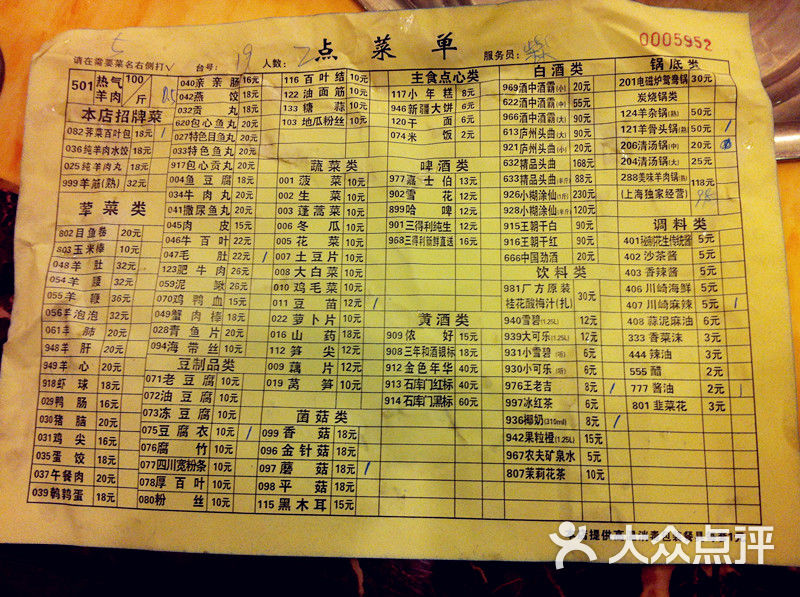 点菜单
0005952
请在需要菜名右侧打√ 台号: 19 人数: 2 服务员:
501 热气羊肉 100/斤
本店招牌菜
082 荠菜百叶包 18元
036 纯羊肉水饺 18元
025 纯羊肉丸 18元
999 羊筋(熟) 32元
荤菜类
802 目鱼卷 20元
803 玉米棒 10元
048 羊肚 32元
054 羊腰 32元
055 羊鞭 36元
056 羊泡泡 32元
061 羊肺 20元
948 羊肝 20元
949 羊心 20元
918 虾球 18元
029 鸭肠 16元
030 猪脑 20元
031 鸡尖 16元
035 蛋饺 18元
037 午餐肉 20元
039 鹌鹑蛋 18元
040 亲亲肠 16元
042 燕饺 18元
032 贡丸 18元
620 包心鱼丸 20元
027 特色目鱼丸 20元
033 特色鱼丸 20元
917 包心贡丸 20元
004 鱼豆腐 18元
034 牛肉丸 20元
041 撒尿鱼丸 20元
045 肉皮 15元
046 牛百叶 22元
047 毛肚 22元
123 肥牛肉 26元
059 泥鳅 26元
070 鸡鸭血 15元
049 蟹肉棒 18元
028 青鱼片 20元
094 海带丝 10元
豆制品类
071 老豆腐 10元
072 油豆腐 10元
073 冻豆腐 10元
075 豆腐衣 10元
076 腐竹 10元
077 四川宽粉条 10元
078 厚百叶 10元
080 粉丝 10元
116 百叶结 10元
122 油面筋 10元
133 糖蒜 10元
103 地瓜粉丝 10元
蔬菜类
001 菠菜 10元
002 生菜 10元
003 蓬蒿菜 10元
006 冬瓜 10元
005 花菜 10元
007 土豆片 10元
008 大白菜 10元
010 鸡毛菜 10元
011 豆苗 12元
022 萝卜片 10元
016 山药 18元
112 笋尖 12元
009 藕片 12元
019 莴笋 10元
菌菇类
099 香菇 18元
096 金针菇 18元
097 蘑菇 18元
098 平菇 18元
115 黑木耳 15元
主食点心类
117 小年糕 8元
946 新疆大饼 6元
120 干面 6元
074 米饭 2元
啤酒类
977 嘉士伯 13元
902 雪花 12元
899 哈啤 12元
901 三得利纯生 12元
968 三得利新鲜直送 16元
黄酒类
909 侬好 15元
908 三年和酒银标 18元
912 金色年华 40元
913 石库门红标 40元
914 石库门黑标 60元
白酒类
969 酒中酒霸(小) 20元
622 酒中酒霸(中) 55元
966 酒中酒霸(大) 90元
613 庐州头曲(大) 90元
921 庐州头曲(小) 20元
632 精品头曲 168元
633 精品头曲(半斤) 88元
926 小糊涂仙(1斤) 230元
928 小糊涂仙(半斤) 120元
915 王朝干白 90元
916 王朝干红 90元
666 中国劲酒 20元
饮料类
981 厂方原装桂花酸梅汁(扎) 30元
940 雪碧(1.25L) 12元
939 大可乐(1.25L) 12元
931 小雪碧(听) 6元
930 小可乐(听) 6元
976 王老吉 8元
997 冰红茶 6元
936 椰奶(310ml) 8元
942 果粒橙(1.25L) 15元
967 农夫矿泉水 5元
807 茉莉花茶 10元
锅底类
201 电磁炉鸳鸯锅 30元
炭烧锅类
124 羊杂锅(熟) 50元
121 羊骨头锅(熟) 50元
206 清汤锅(中) 20元
204 清汤锅(大) 25元
288 美味羊肉锅(熟)
(上海独家经营) 118元
调料类
401 秘制花生传统酱 5元
402 沙茶酱 5元
403 香辣酱 5元
406 川崎海鲜 5元
407 川崎麻辣 5元
408 蒜泥麻油 6元
333 香菜沫 3元
444 辣油 3元
555 醋 2元
777 酱油 2元
801 韭菜花 3元
大众点评